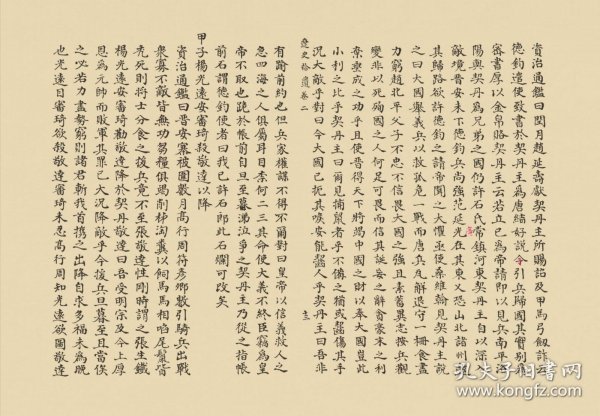 資治通鑑曰閏月趙延壽獻契丹主所賜詔及甲馬弓劔詐云
德鈞遣使致書於契丹主為唐結好説令引兵歸國其實別為
密書厚以金帛賂契丹主云若立己為帝請即以見兵南平洛
陽與契丹為兄弟之國仍許石氏常鎮河東契丹主自以深入
敵境晉安未下德鈞兵尚強范延光在其東又恐山北諸州邀
其歸路欲許德鈞之請帝聞之大懼亟使桑維翰見契丹主說
之曰大國舉義兵以救孤危一戰而唐兵瓦解退守一柵食盡
力窮趙北平父子不忠不信畏大國之強且素蓄異志按兵觀
變非以死殉國之人何足可畏而信其誕妄之辭貪豪末之利
棄垂成之功乎且使晉得天下將竭中國之財以奉大國豈此
小利之比乎契丹主曰爾見捕鼠者乎不備之猶或齧傷其手
況大敵乎對曰今大國已扼其喉安能齧人乎契丹主曰吾非
遼史拾遺卷二
十三
有踰前約也但兵家權謀不得不爾對曰皇帝以信義救人之
急四海之人俱屬耳目柰何二三其命使大義不終臣竊為皇
帝不取也跪於帳前自旦至暮涕泣爭之契丹主乃從之指帳
前石謂德鈞使者曰我已許石郎此石爛可改矣
甲子楊光遠安審琦殺敬達以降
資治通鑑曰晉安寨被圍數月高行周符彥卿數引騎兵出戰
衆寡不敵皆無功芻糧俱竭削柹淘糞以飼馬馬相啗尾鬣皆
禿死則將士分食之援兵竟不至張敬達性剛時謂之張生鐵
楊光遠安審琦勸敬達降於契丹敬達曰吾受明宗及今上厚
恩為元帥而敗軍其罪已大況降敵乎今援兵旦暮至且當俟
之必若力盡勢窮則諸君斬我首攜之出降自求多福未為晚
也光遠目審琦欲殺敬達審琦未忍高行周知光遠欲圖敬達
孔夫子旧书网
www.kongfz.com